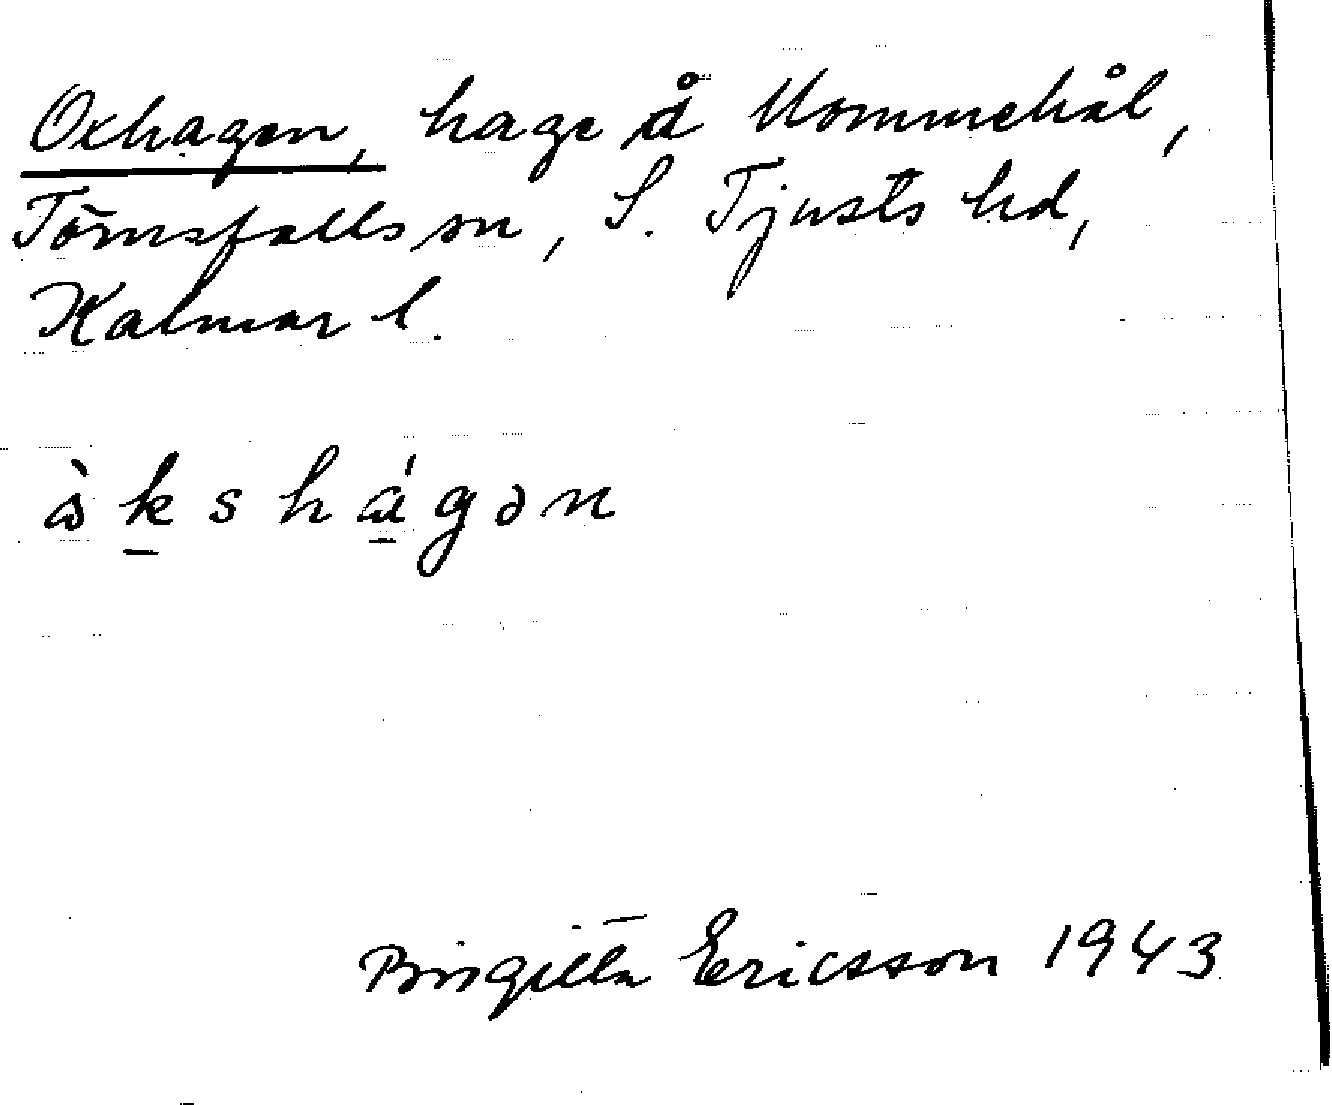 Oxhagen, hage å Kommehål,
Törnsfalls sn, S. Tjusts hd,
Kalmar l.
ò k s h á g ə n
Birgitta Ericsson 1943